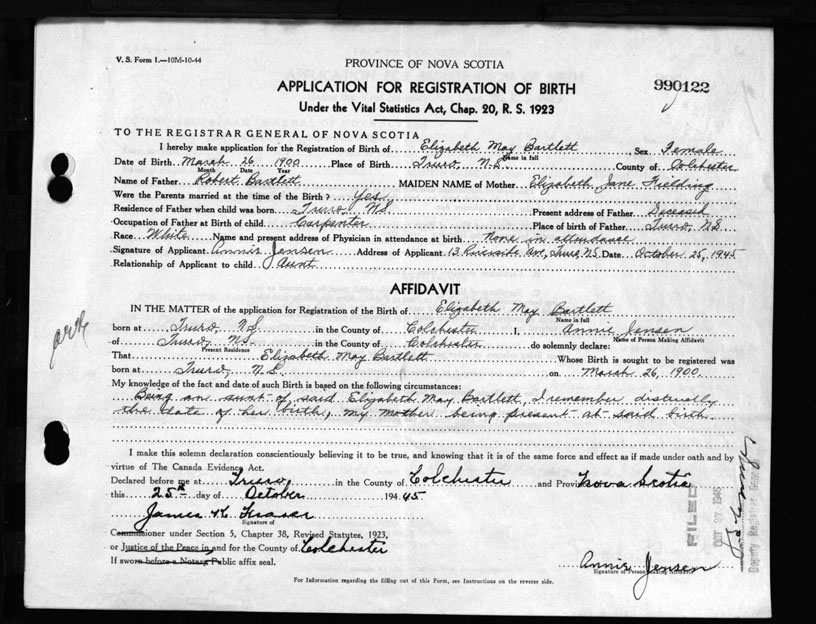 V. S. Form 1.—10M-10-44
PROVINCE OF NOVA SCOTIA
APPLICATION FOR REGISTRATION OF BIRTH
990122
Under the Vital Statistics Act, Chap. 20, R. S. 1923
TO THE REGISTRAR GENERAL OF NOVA SCOTIA
I hereby make application for the Registration of Birth of Elizabeth May Bartlett, Sex Female
Name in full
Date of Birth March 26 1900 Place of Birth Truro, N.S. County of Colchester
Month Date Year
Name of Father Robert Bartlett MAIDEN NAME of Mother Elizabeth Jane Fielding
Were the Parents married at the time of the Birth? Yes
Residence of Father when child was born Truro, N.S. Present address of Father Deceased
Occupation of Father at Birth of child Carpenter Place of birth of Father Truro, N.S
Race White Name and present address of Physician in attendance at birth None in attendance
Signature of Applicant Annie Jensen Address of Applicant 13 Riverside Ave, Truro NS Date October 25, 1945
Relationship of Applicant to child Aunt
AFFIDAVIT
IN THE MATTER of the application for Registration of the Birth of Elizabeth May Bartlett
Name in full
born at Truro, N.S. in the County of Colchester I Annie Jensen
Name of Person Making Affidavit
of Truro, N.S. in the County of Colchester do solemnly declare:
Present Residence
That Elizabeth May Bartlett Whose Birth is sought to be registered was
born at Truro, N.S. on March 26, 1900.
My knowledge of the fact and date of such Birth is based on the following circumstances:
Being an aunt of said Elizabeth May Bartlett, I remember distinctly
the date of her birth, my mother being present at said birth.
I make this solemn declaration conscientiously believing it to be true, and knowing that it is of the same force and effect as if made under oath and by
virtue of The Canada Evidence Act.
Declared before me at Truro in the County of Colchester and Province Nova Scotia
this 25th day of October 194 45
James K Fraser
Signature of
Commissioner under Section 5, Chapter 38, Revised Statutes, 1923,
or Justice of the Peace in and for the County of Colchester
If sworn before a Notary Public affix seal.
Annie Jensen
Signature of Person Making Affidavit
For Information regarding the filling out of this Form, see Instructions on the reverse side.
FILED
OCT 27 1945
Deputy Registrar General